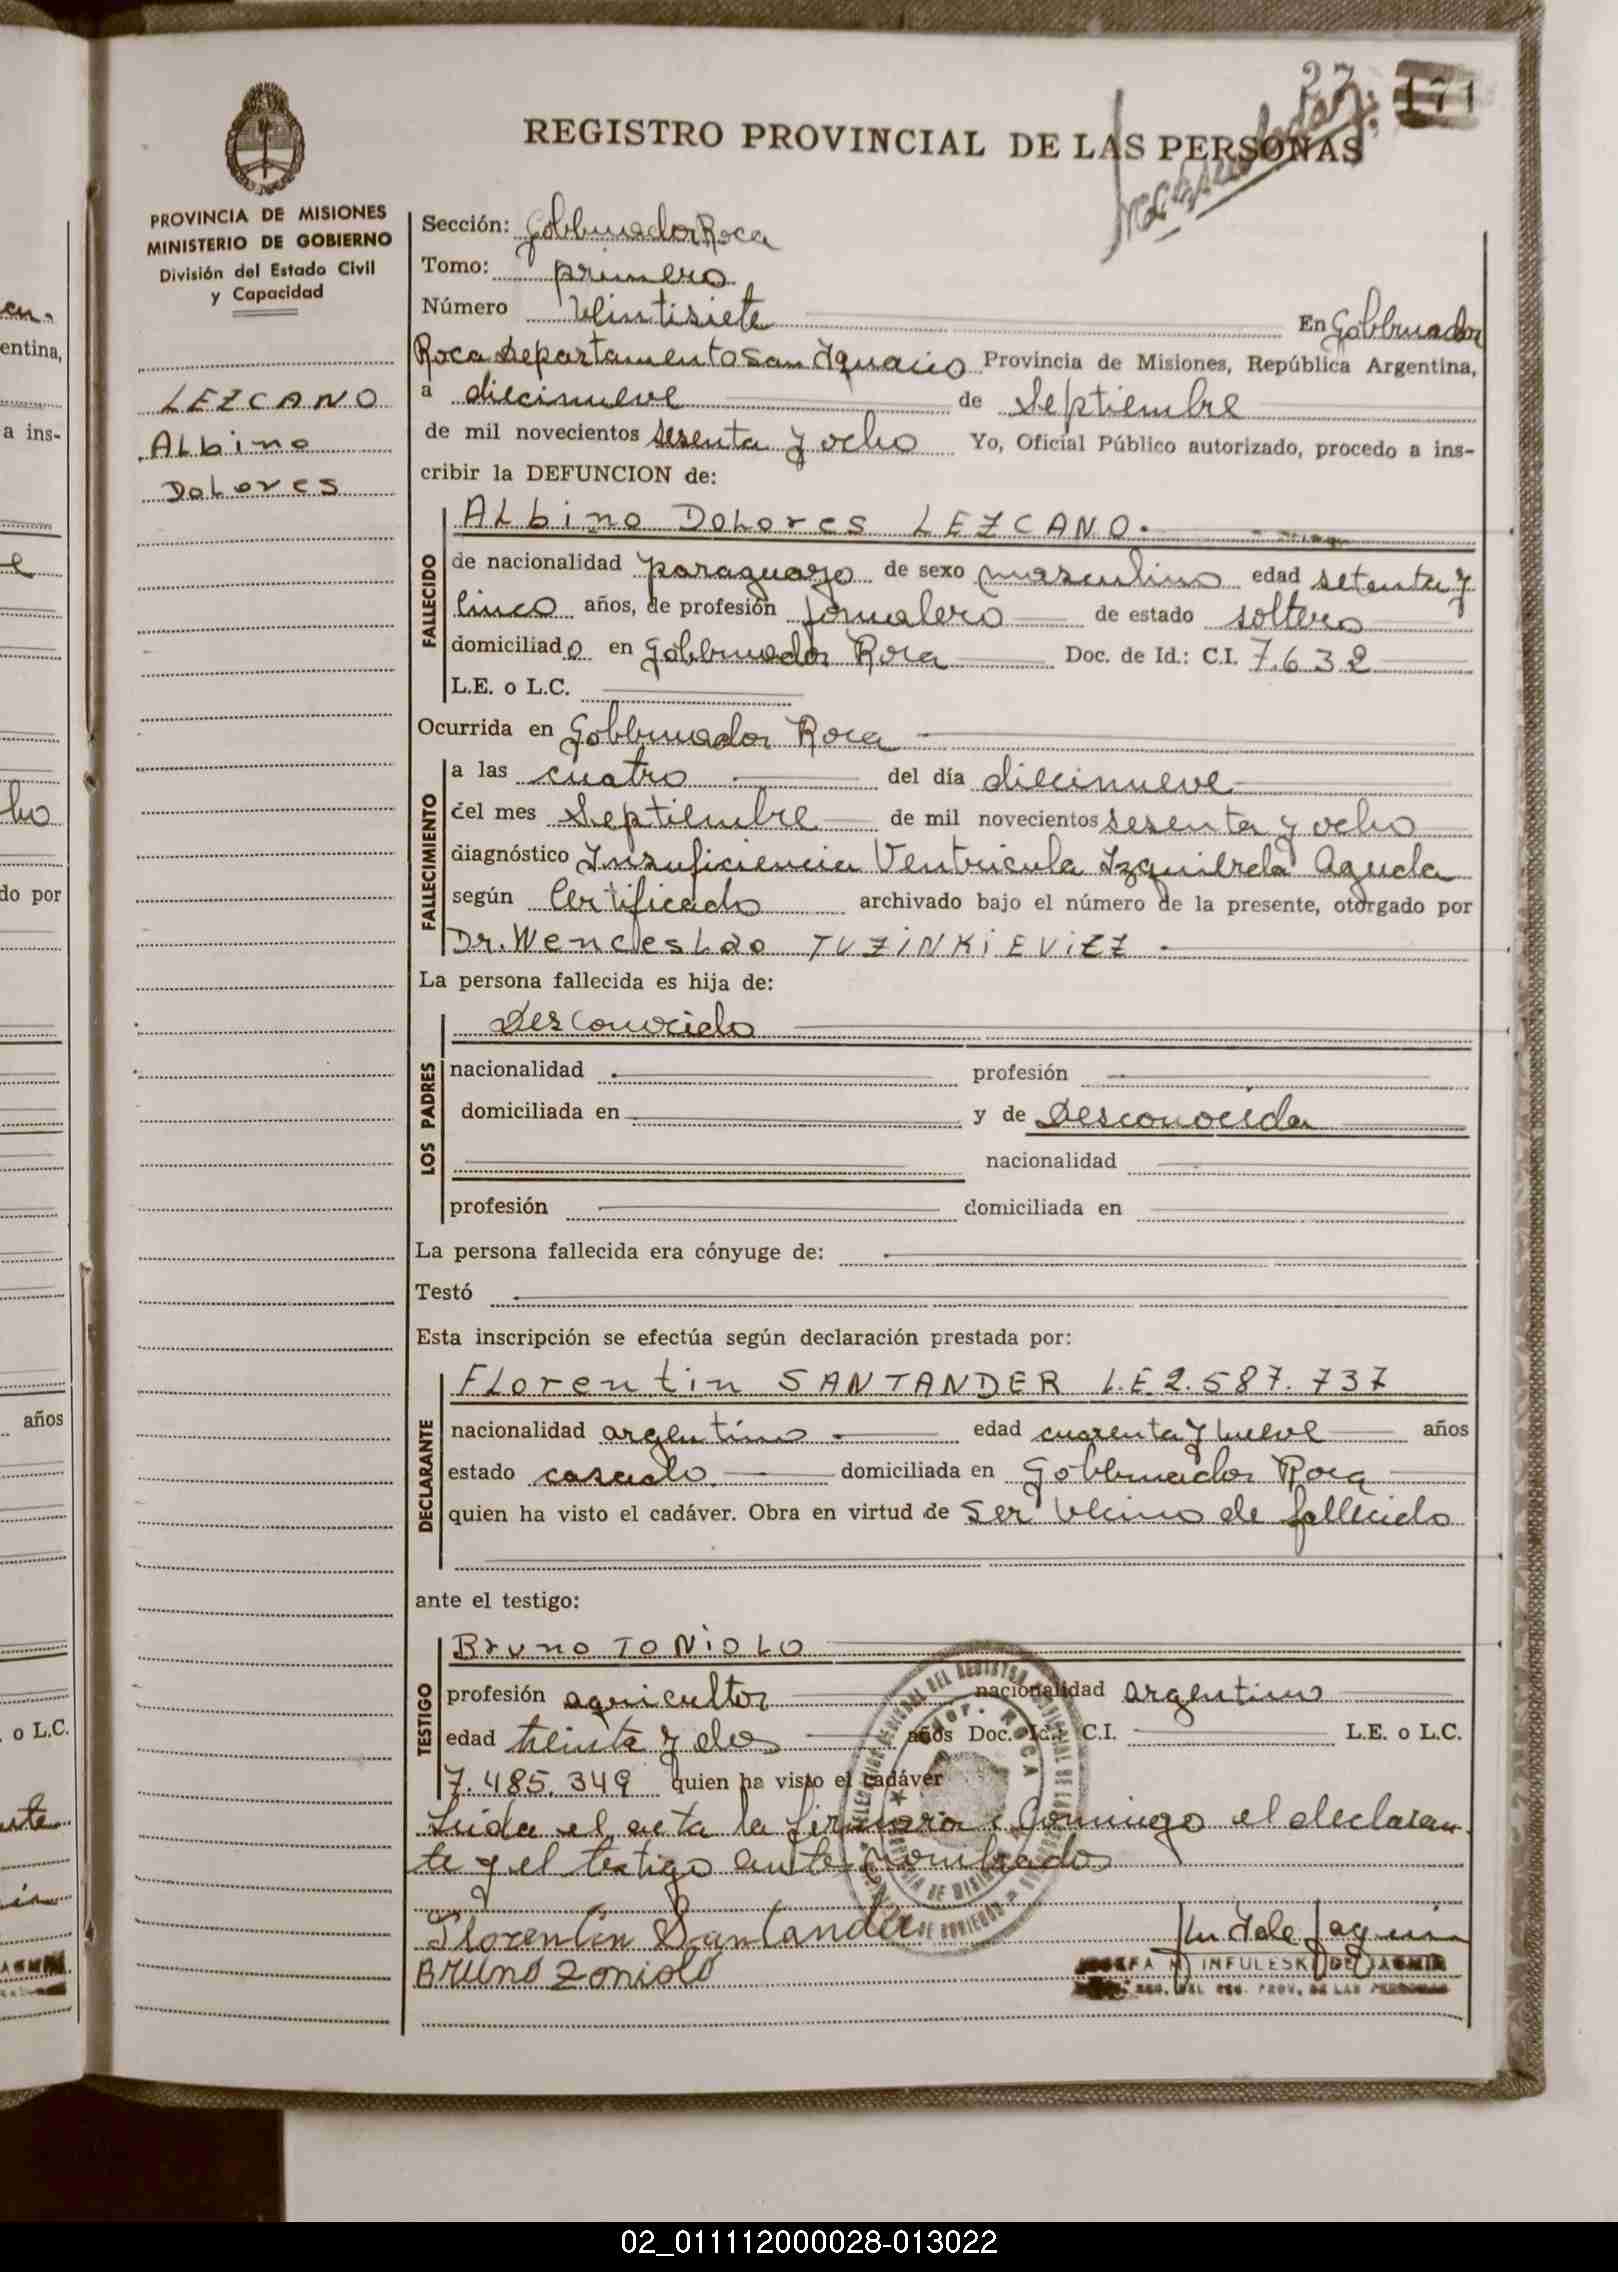 27 171
REGISTRO PROVINCIAL DE LAS PERSONAS
PROVINCIA DE MISIONES
MINISTERIO DE GOBIERNO
División del Estado Civil
y Capacidad
LEZCANO
Albino
Dolores
Sección: Gobernador Roca
Tomo: primero
Número Veintisiete En Gobernador
Roca Departamento San Ignacio Provincia de Misiones, República Argentina,
a diecinueve de Septiembre
de mil novecientos sesenta y ocho Yo, Oficial Público autorizado, procedo a ins-
cribir la DEFUNCION de:
FALLECIDO
Albino Dolores LEZCANO.
de nacionalidad paraguayo de sexo masculino edad setenta y
cinco años, de profesión jornalero de estado soltero
domiciliado en Gobernador Roca Doc. de Id.: C.I. 7.632
L.E. o L.C.
Ocurrida en Gobernador Roca
FALLECIMIENTO
a las cuatro del día diecinueve
del mes Septiembre de mil novecientos sesenta y ocho
diagnóstico Insuficiencia Ventricula Izquierda Aguda
según Certificado archivado bajo el número de la presente, otorgado por
Dr. Wenceslao TUZINKIEVIEZ.
La persona fallecida es hija de:
LOS PADRES
Desconocido
nacionalidad profesión
domiciliada en y de Desconocida
nacionalidad
profesión domiciliada en
La persona fallecida era cónyuge de:
Testó
Esta inscripción se efectúa según declaración prestada por:
DECLARANTE
Florentin SANTANDER L.E.2.587.737
nacionalidad argentino edad cuarenta y nueve años
estado casado domiciliada en Gobernador Roca
quien ha visto el cadáver. Obra en virtud de ser vecino de fallecido
ante el testigo:
TESTIGO
Bruno TONIOLO
profesión agricultor nacionalidad argentino
edad treinta y dos años Doc. Id.: C.I. L.E. o L.C.
7.485.349 quien ha visto el cadáver
Leida el acta la firmaron Conmigo el declaran-
te y el testigo ante nombrados
Florentin Santander
Bruno Zoniolo
JOSEFA M INFULESKI DE JAGMIN
REG. DEL REG. PROV. DE LAS PERSONAS
en.
entina,
a ins-
do por
años
o L.C.
02_011112000028-013022